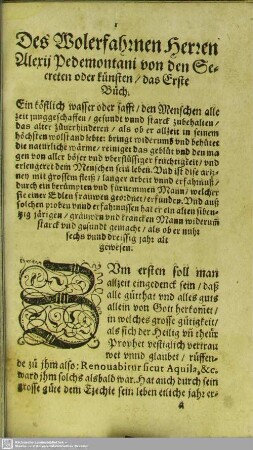 Des Wolerfahrnen Herren
Alexij Pedemontani von den Se-
creten oder künsten / das Erste
Büch.
Ein köstlich wasser oder safft / den Menschen alle
zeit junggeschaffen / gesundt vnnd starck zubehalten /
das alter zuuerhinderen / als ob er allzeit in seinem
höchsten wolstand lebte: bringt widerumb vnd behütet
die natürliche wärme / reiniget das geblüt vnd den ma
gen von aller böser vnd vberflüssiger feuchtigkeit / vnd
erlengeret dem Menschen sein leben. Vnd ist die artz-
ney mit grossem fleiß / langer arbeit vnnd erfahrnuß /
durch ein berümpten vnd fürnemmen Mann / welcher
sie einer Edlen frauwen geordnet / erfunden. Vnd auß
solchen proben vnnd erfahrnussen hat er ein alten siben-
tzig järigen / gräuwen vnd krancken Mann widerumb
starck vnd gesundt gemacht / als ob er nuhr
sechs vnnd dreissig jahr alt
gewesen.
Vm ersten soll man
allzeit eingedenck sein / daß
alle gütthat vnd alles guts
allein von Gott herkomet /
in welches grosse gütigkeit /
als sich der Heilig vñ theür
Prophet vestiglich vertrau
wet vnnd glaubet / rüffen-
de zu jhm also: Renouabitur sicut Aquila, &c.
ward jhm solchs alsbald war. Hat auch durch sein
grosse güte dem Ezechie sein leben etliche jahr er-
a